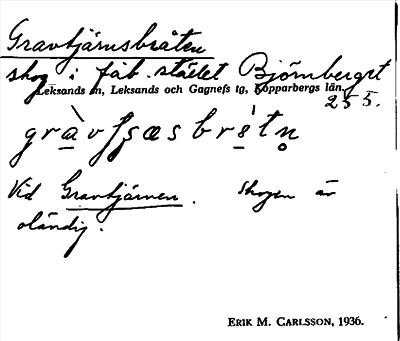 Gravtjärnsbråten
skog i fäb.stället Björnberget
Leksands sn, Leksands och Gagnefs tg, Kopparbergs län.
255.
Vid Gravtjärnen. Skogen är
oländig.
ERIK M. CARLSSON, 1936.